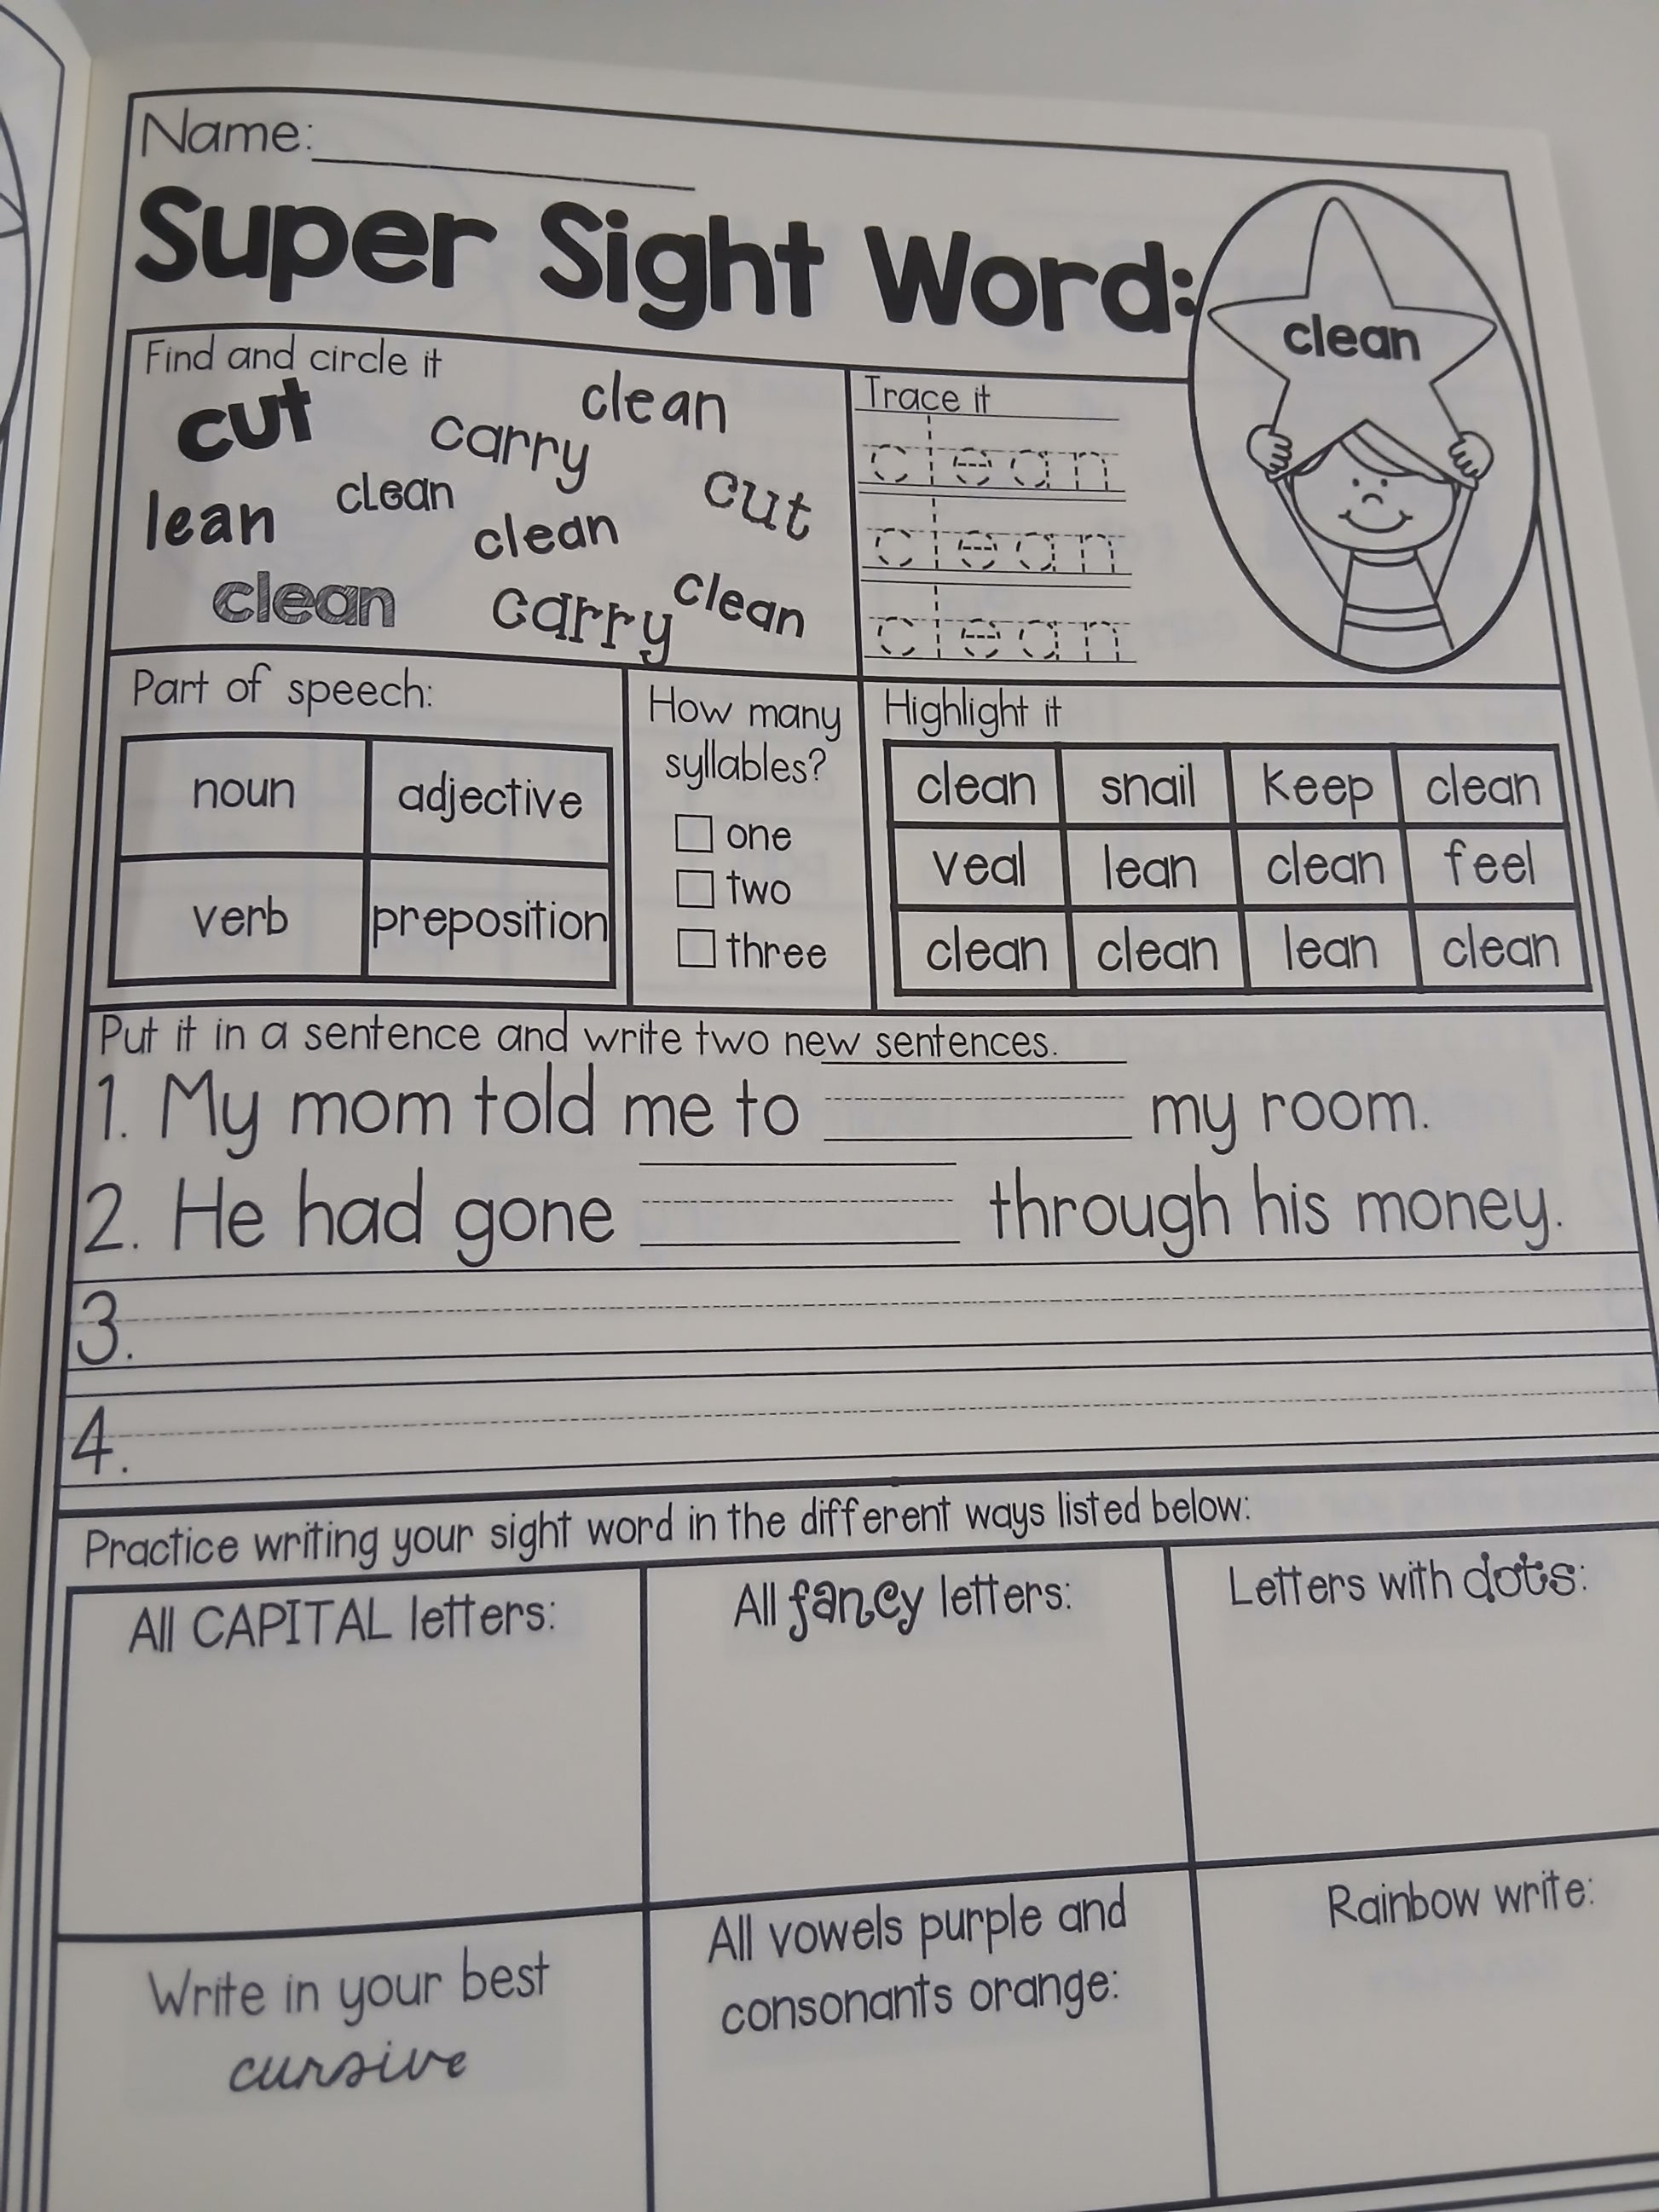 Name:
Super Sight Word:
clean
Find and circle it
cut carry clean
lean clean clean cut
clean carry clean
Trace it
clean
clean
clean
Part of speech:
noun adjective
verb preposition
How many
syllables?
one
two
three
Highlight it
clean snail keep clean
veal lean clean feel
clean clean lean clean
Put it in a sentence and write two new sentences.
1. My mom told me to my room.
2. He had gone through his money.
3.
4.
Practice writing your sight word in the different ways listed below:
All CAPITAL letters:
All fancy letters:
Letters with dots:
Write in your best
cursive
All vowels purple and
consonants orange:
Rainbow write: